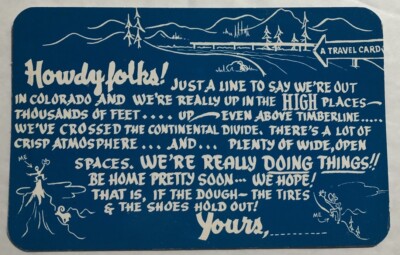 A TRAVEL CARD
Howdy folks! JUST A LINE TO SAY WE'RE OUT
IN COLORADO AND WE'RE REALLY UP IN THE HIGH PLACES—
THOUSANDS OF FEET .... UP — EVEN ABOVE TIMBERLINE .....
WE'VE CROSSED THE CONTINENTAL DIVIDE. THERE'S A LOT OF
CRISP ATMOSPHERE ... AND ... PLENTY OF WIDE, OPEN
SPACES. WE'RE REALLY DOING THINGS!!
ME
BE HOME PRETTY SOON ... WE HOPE!
THAT IS, IF THE DOUGH — THE TIRES
& THE SHOES HOLD OUT!
ME
Yours,